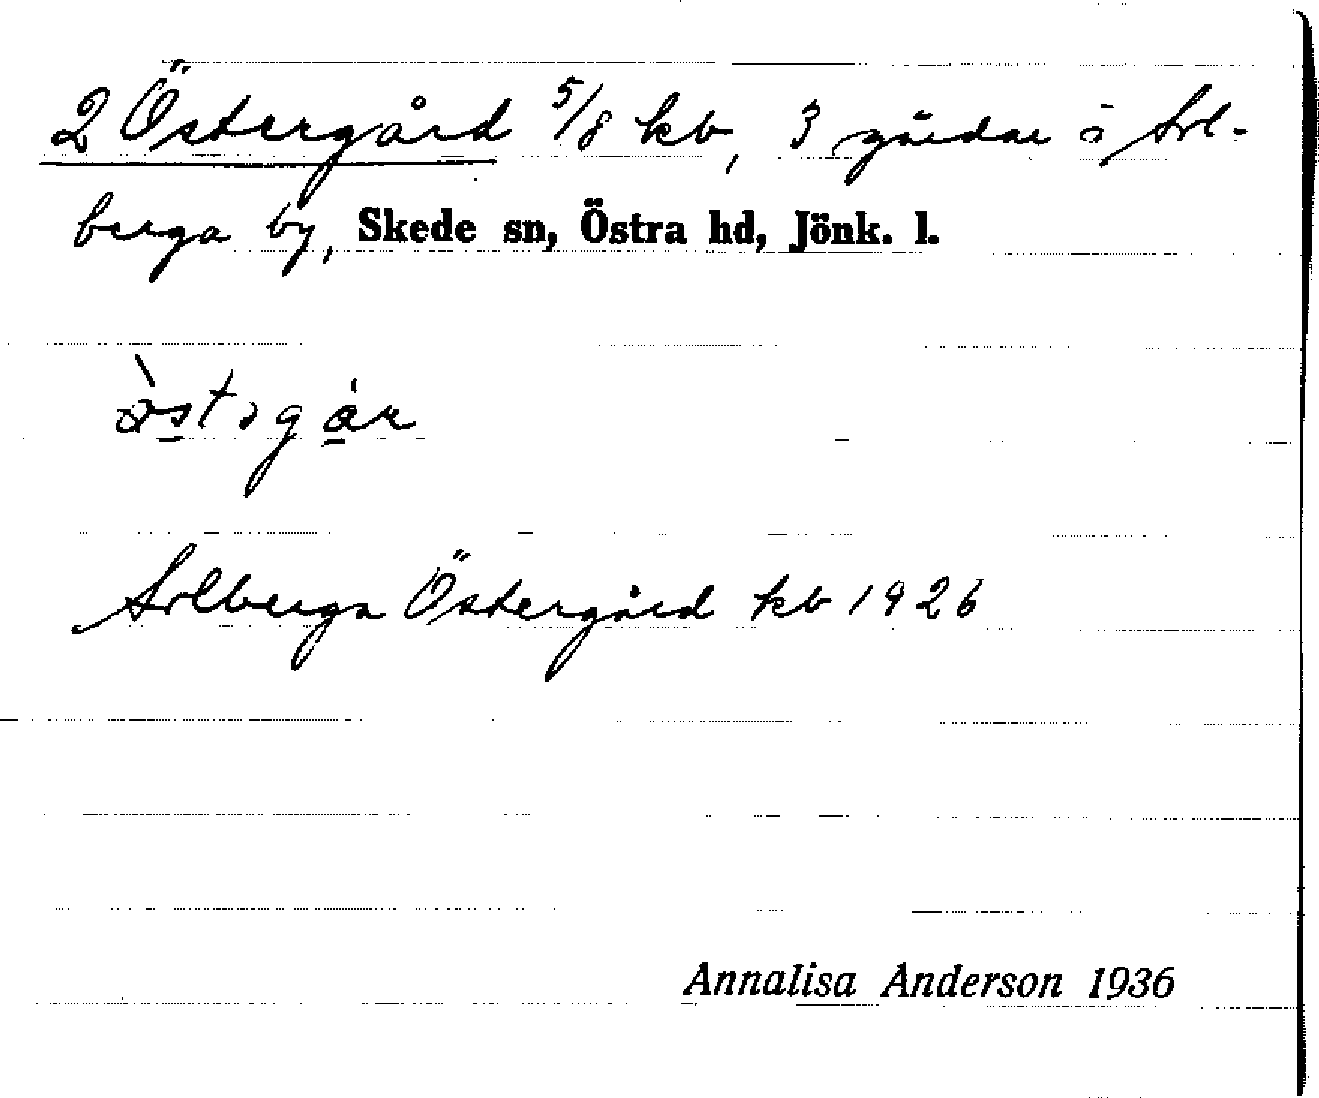 2 Östergård 5/8 kb, 3 gårdar i Sol-
berga by, Skede sn, Östra hd, Jönk. l.
Solberga Östergård kb 1926
Annalisa Anderson 1936